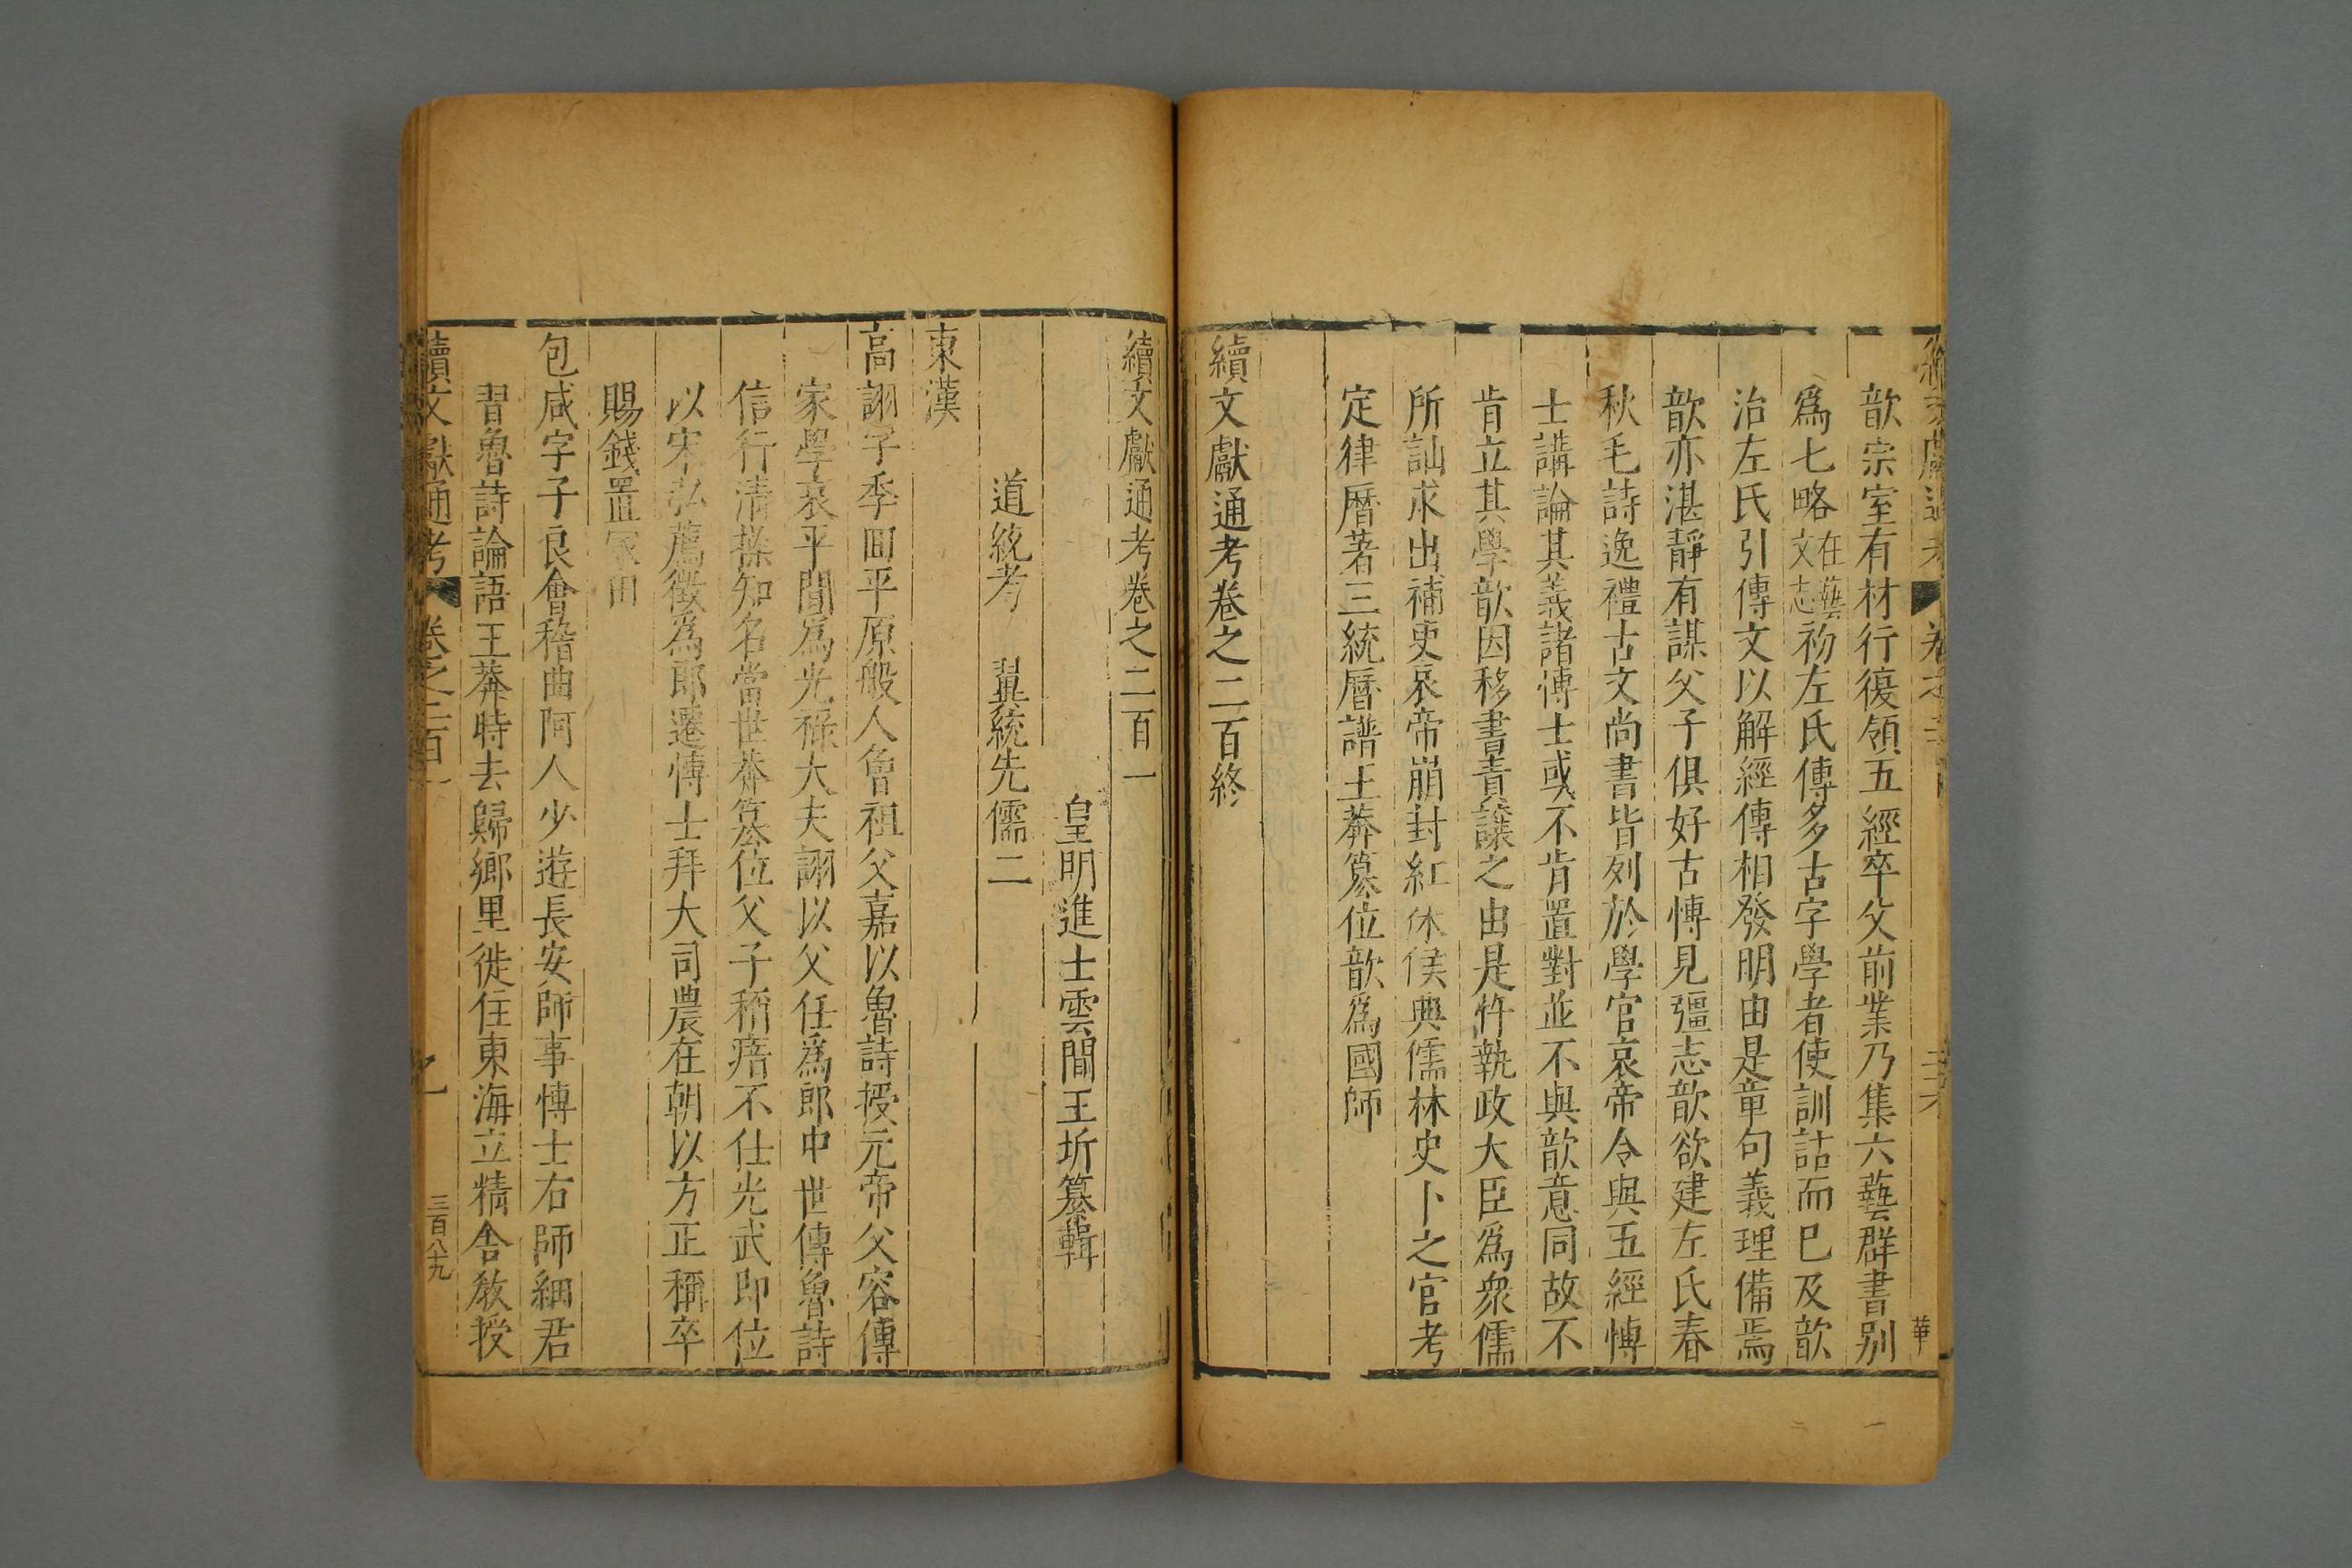 歆宗室有材行復領五經卒父前業乃集六藝群書别
爲七略在藝文志初左氏傳多古字學者使訓詁而巳及歆
治左氏引傳文以解經傳相發明由是章句義理備焉
歆亦湛靜有謀父子俱好古博見彊志歆欲建左氏春
秋毛詩逸禮古文尚書皆列於學官哀帝令與五經博
士講論其義諸博士或不肯置對並不與歆意同故不
肯立其學歆因移書責讓之由是忤執政大臣爲衆儒
所訕求出補吏哀帝崩封紅休侯典儒林史卜之官考
定律曆著三統曆譜王莽簒位歆爲國師
續文獻通考卷之二百終
續文獻通考卷之二百一
皇明進士雲間王圻纂輯
道統考 翼統先儒二
東漢
高詡字季回平原般人曾祖父嘉以魯詩授元帝父容傳
家學哀平間爲光祿大夫詡以父任爲郎中世傳魯詩
信行清操知名當世莽簒位父子稱瘖不仕光武即位
以宋弘薦徵爲郎遷博士拜大司農在朝以方正稱卒
賜錢置冡田
包咸字子良會稽曲阿人少遊長安師事博士右師細君
習魯詩論語王莽時去歸鄉里徙住東海立精舍教授
續文獻通考 卷之二百一 三百八十九